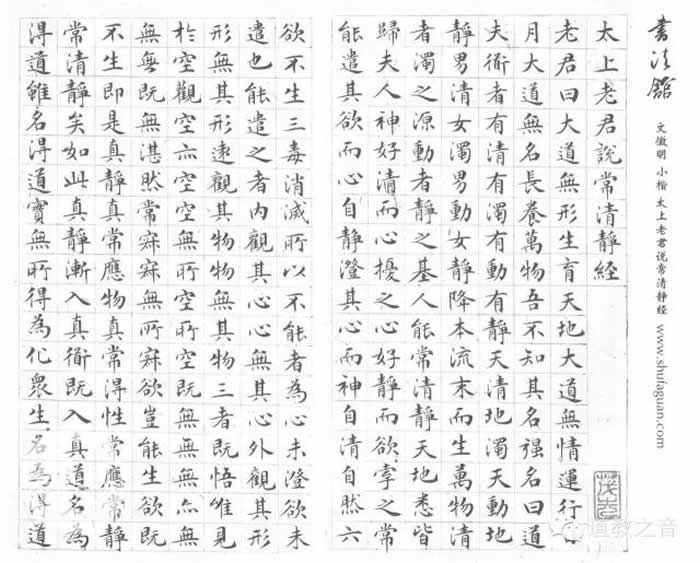 書法館
文徵明 小楷 太上老君说常清静经 www.shufaguan.com
太上老君說常清靜經
老君曰大道無形生育天地大道無情運行
月大道無名長養萬物吾不知其名强名曰道
夫衜者有清有濁有動有靜天清地濁天動地
靜男清女濁男動女靜降本流末而生萬物清
者濁之源動者靜之基人能常清靜天地悉皆
歸夫人神好清而心擾之心好靜而欲牽之常
能遣其欲而心自靜澄其心而神自清自然六
欲不生三毒消滅所以不能者為心未澄欲未
遣也能遣之者內觀其心心無其心外觀其形
形無其形遠觀其物物無其物三者既悟唯見
於空觀空亦空空無所空所空既無無無亦無
無無既無湛然常寂寂無所寂欲豈能生欲既
不生即是真靜真常應物真常得性常應常靜
常清靜矣如此真靜漸入真衜既入真道名為
得道雖名得道實無所得為化衆生名為得道
道教之音